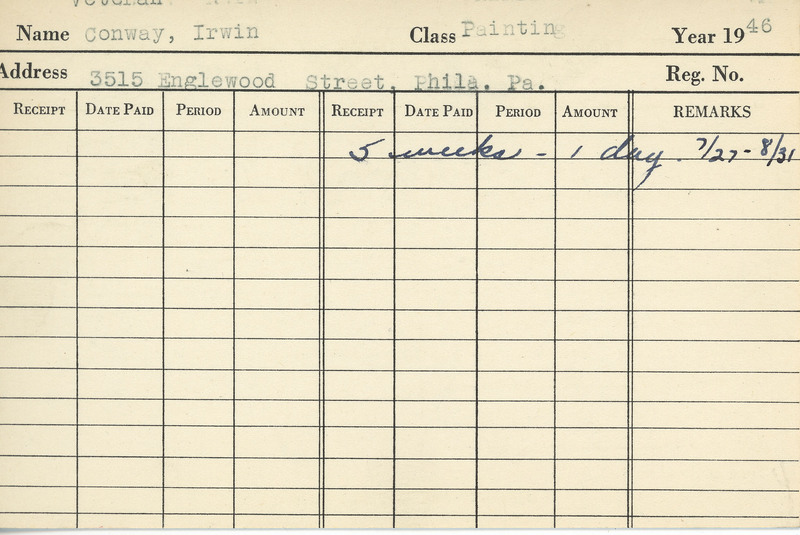 Veteran
Name Conway, Irwin Class Painting Year 1946
Address 3515 Englewood Street, Phila. Pa. Reg. No.
RECEIPT DATE PAID PERIOD AMOUNT RECEIPT DATE PAID PERIOD AMOUNT REMARKS
5 weeks - 1 day. 7/27 - 8/31